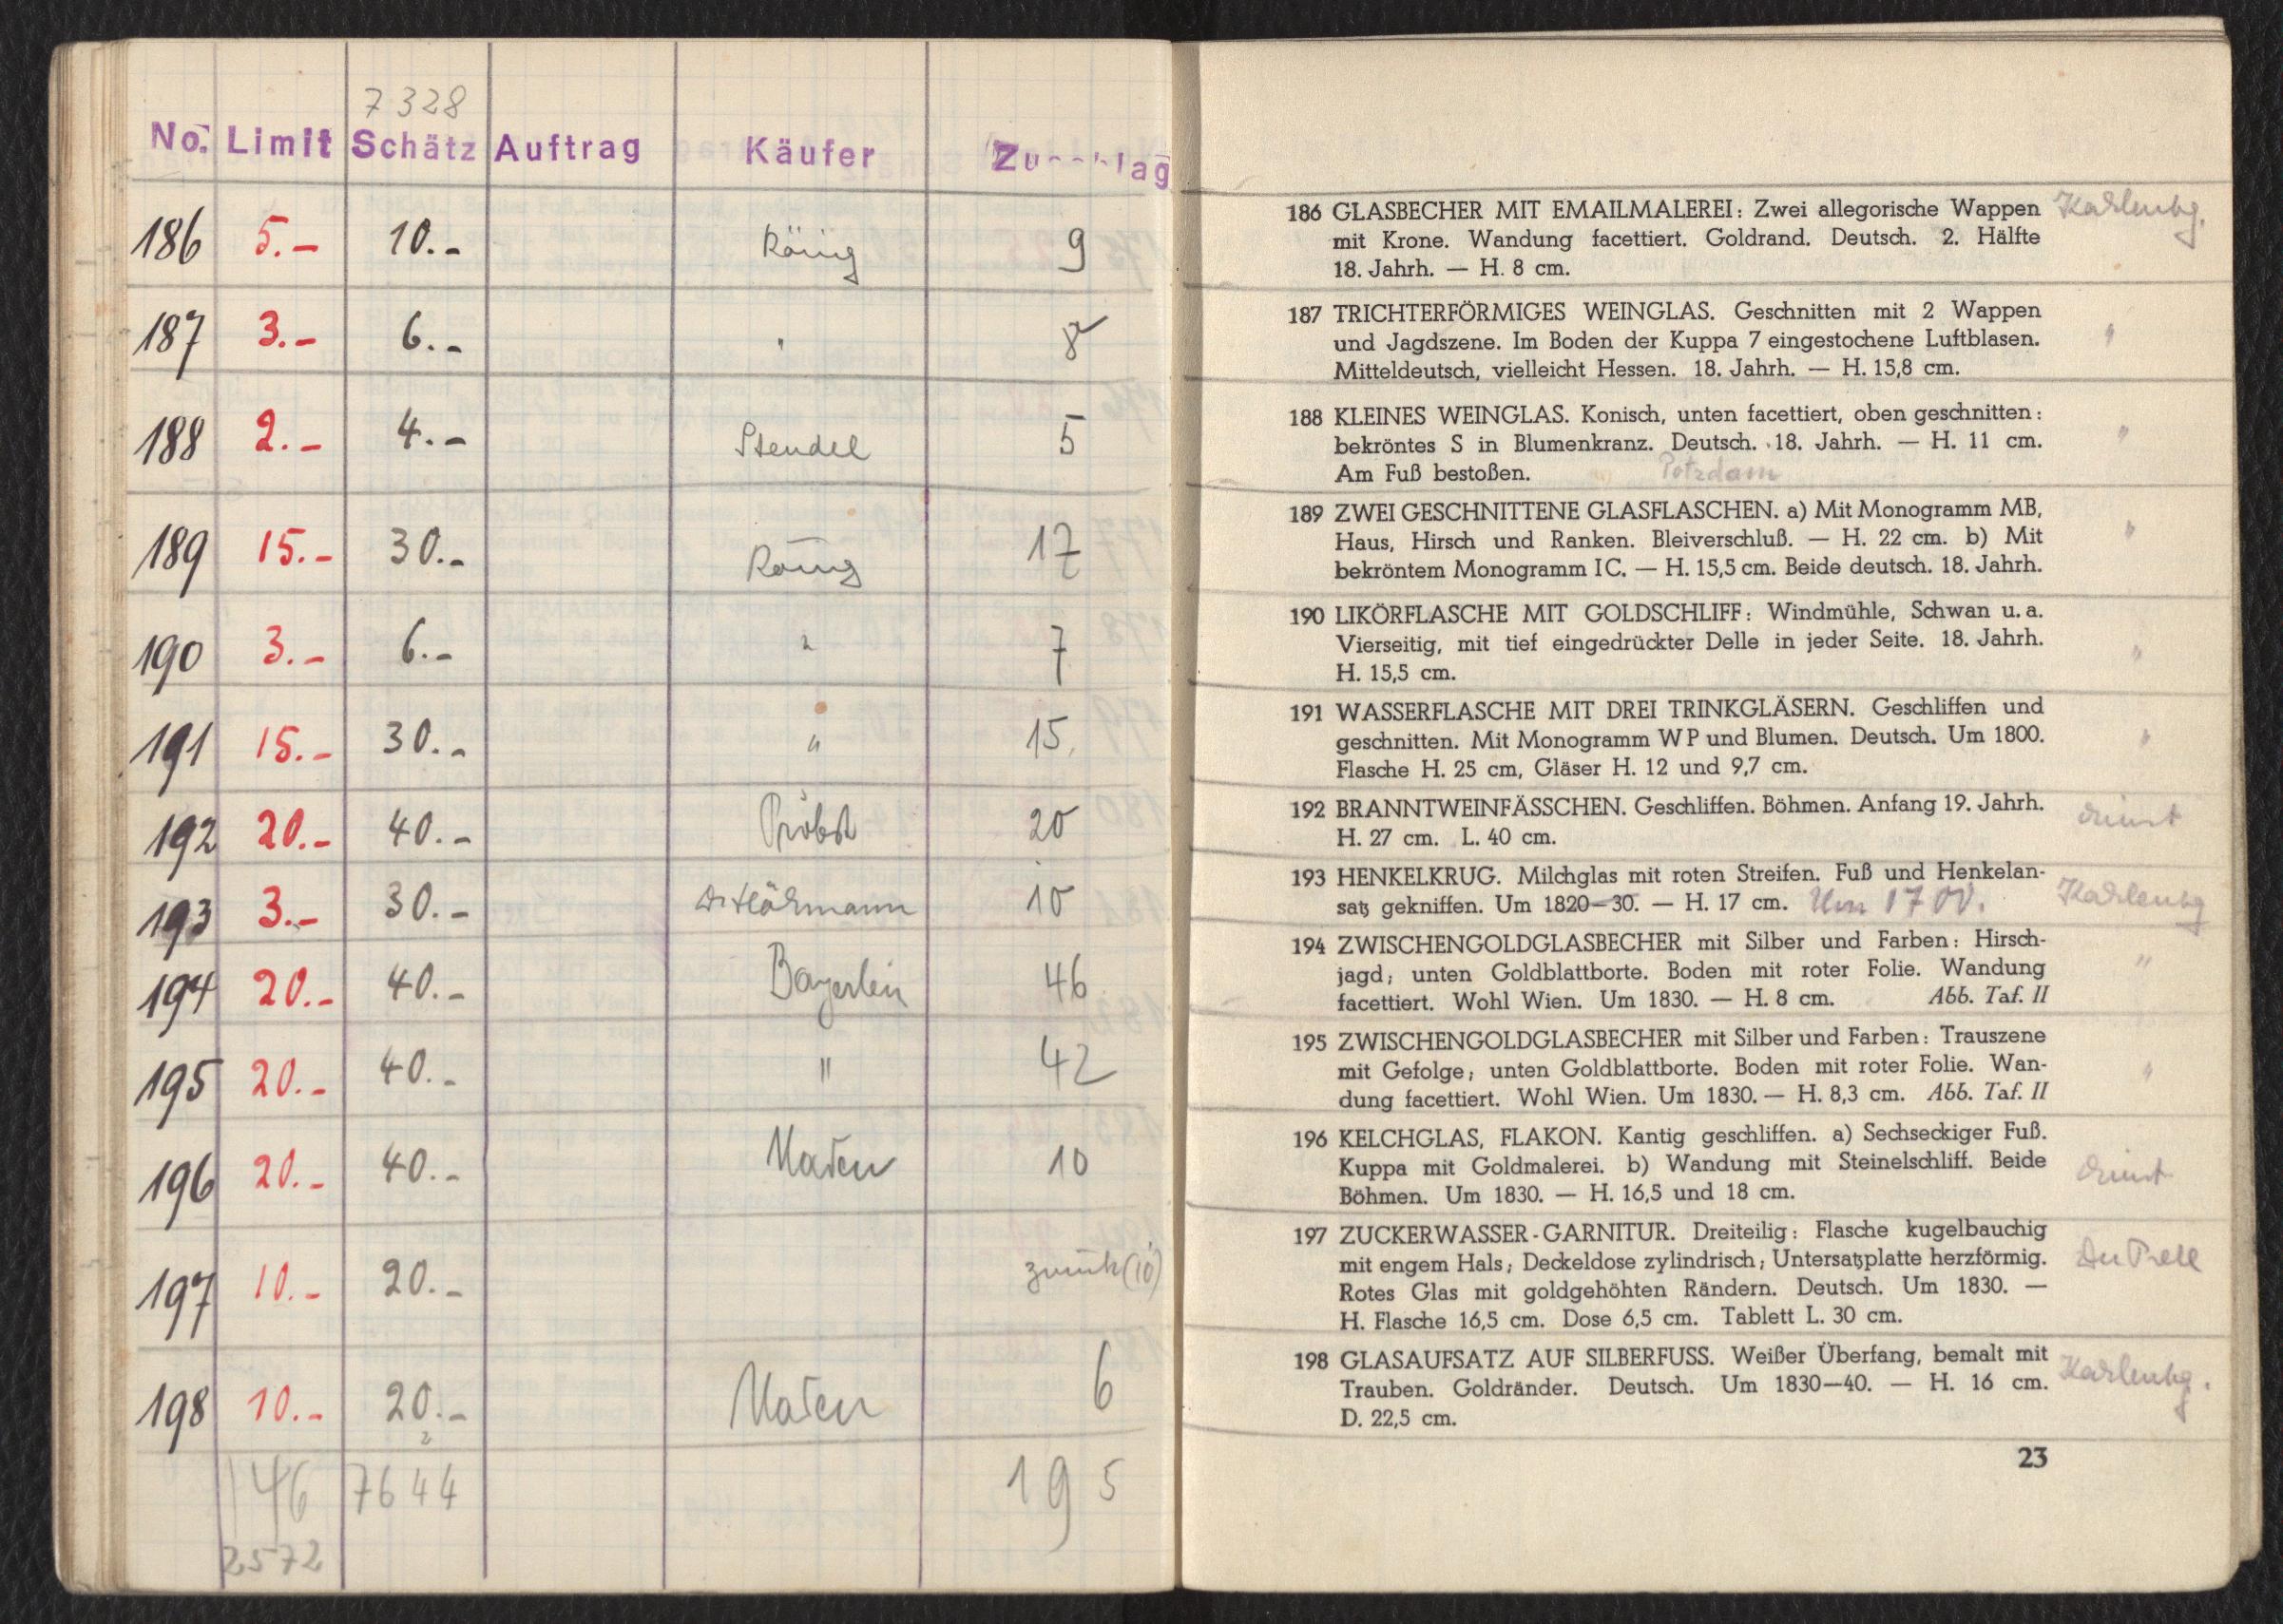 7328
No. Limit Schätz Auftrag Käufer Zuschlag
186 5.– 10.– König 9
187 3.– 6.– " 8
188 2.– 4.– Stendel 5
189 15.– 30.– König 17
190 3.– 6.– " 7
191 15.– 30.– " 15
192 20.– 40.– Pröbst 20
193 3.– 30.– 10
194 20.– 40.– Bayerlein 46
195 20.– 40.– " 42
196 20.– 40.– 10
197 10.– 20.– zurück (10)
198 10.– 20.– 6
146 7644 195
2572
186 GLASBECHER MIT EMAILMALEREI: Zwei allegorische Wappen
mit Krone. Wandung facettiert. Goldrand. Deutsch. 2. Hälfte
18. Jahrh. — H. 8 cm.
187 TRICHTERFÖRMIGES WEINGLAS. Geschnitten mit 2 Wappen "
und Jagdszene. Im Boden der Kuppa 7 eingestochene Luftblasen.
Mitteldeutsch, vielleicht Hessen. 18. Jahrh. — H. 15,8 cm.
188 KLEINES WEINGLAS. Konisch, unten facettiert, oben geschnitten: "
bekröntes S in Blumenkranz. Deutsch. 18. Jahrh. — H. 11 cm.
Am Fuß bestoßen. Potzdam
189 ZWEI GESCHNITTENE GLASFLASCHEN. a) Mit Monogramm MB, "
Haus, Hirsch und Ranken. Bleiverschluß. — H. 22 cm. b) Mit
bekröntem Monogramm IC. — H. 15,5 cm. Beide deutsch. 18. Jahrh.
190 LIKÖRFLASCHE MIT GOLDSCHLIFF: Windmühle, Schwan u. a.
Vierseitig, mit tief eingedrückter Delle in jeder Seite. 18. Jahrh. "
H. 15,5 cm.
191 WASSERFLASCHE MIT DREI TRINKGLÄSERN. Geschliffen und
geschnitten. Mit Monogramm WP und Blumen. Deutsch. Um 1800. "
Flasche H. 25 cm, Gläser H. 12 und 9,7 cm.
192 BRANNTWEINFÄSSCHEN. Geschliffen. Böhmen. Anfang 19. Jahrh.
H. 27 cm. L. 40 cm.
193 HENKELKRUG. Milchglas mit roten Streifen. Fuß und Henkelan-
satz gekniffen. Um 1820—30. — H. 17 cm. Um 1700.
194 ZWISCHENGOLDGLASBECHER mit Silber und Farben: Hirsch- "
jagd; unten Goldblattborte. Boden mit roter Folie. Wandung
facettiert. Wohl Wien. Um 1830. — H. 8 cm. Abb. Taf. II
195 ZWISCHENGOLDGLASBECHER mit Silber und Farben: Trauszene
mit Gefolge; unten Goldblattborte. Boden mit roter Folie. Wan- "
dung facettiert. Wohl Wien. Um 1830. — H. 8,3 cm. Abb. Taf. II
196 KELCHGLAS, FLAKON. Kantig geschliffen. a) Sechseckiger Fuß.
Kuppa mit Goldmalerei. b) Wandung mit Steinelschliff. Beide
Böhmen. Um 1830. — H. 16,5 und 18 cm.
197 ZUCKERWASSER-GARNITUR. Dreiteilig: Flasche kugelbauchig
mit engem Hals; Deckeldose zylindrisch; Untersatzplatte herzförmig.
Rotes Glas mit goldgehöhten Rändern. Deutsch. Um 1830. —
H. Flasche 16,5 cm. Dose 6,5 cm. Tablett L. 30 cm.
198 GLASAUFSATZ AUF SILBERFUSS. Weißer Überfang, bemalt mit
Trauben. Goldränder. Deutsch. Um 1830—40. — H. 16 cm.
D. 22,5 cm.
23